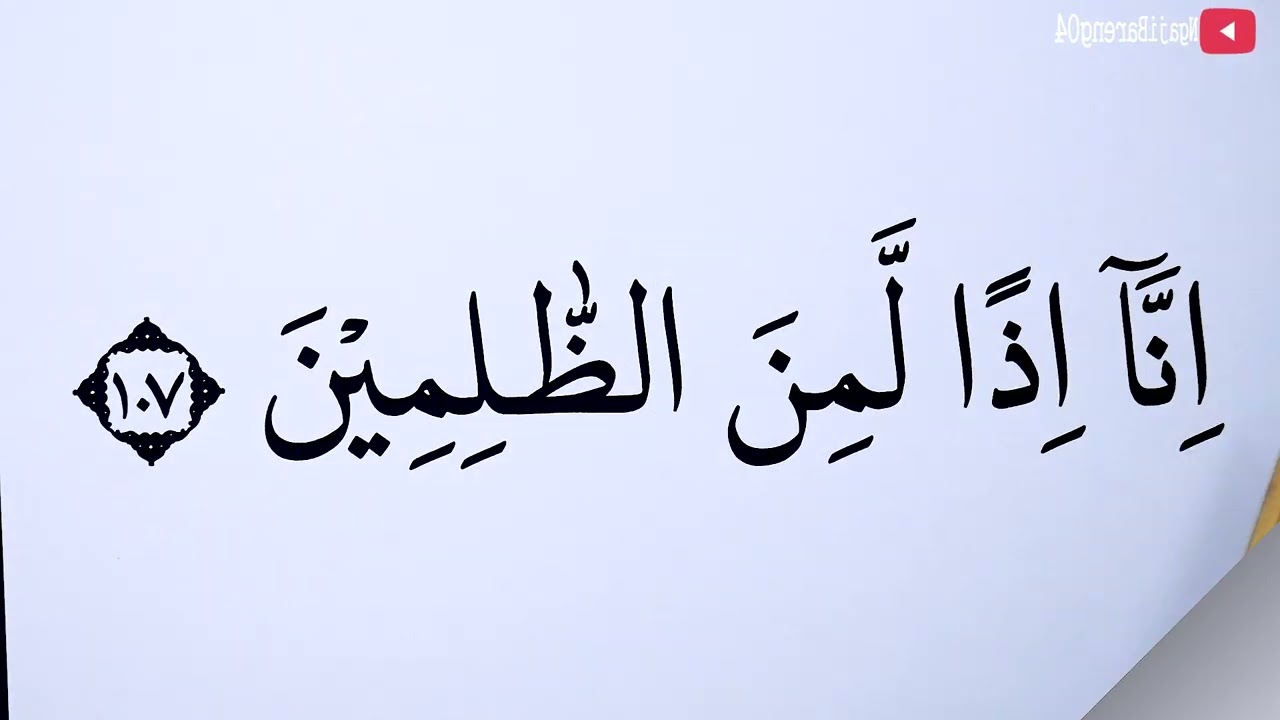 NgajiBareng04
اِنَّآ اِذًا لَّمِنَ الظّٰلِمِيْنَ ١٠٧